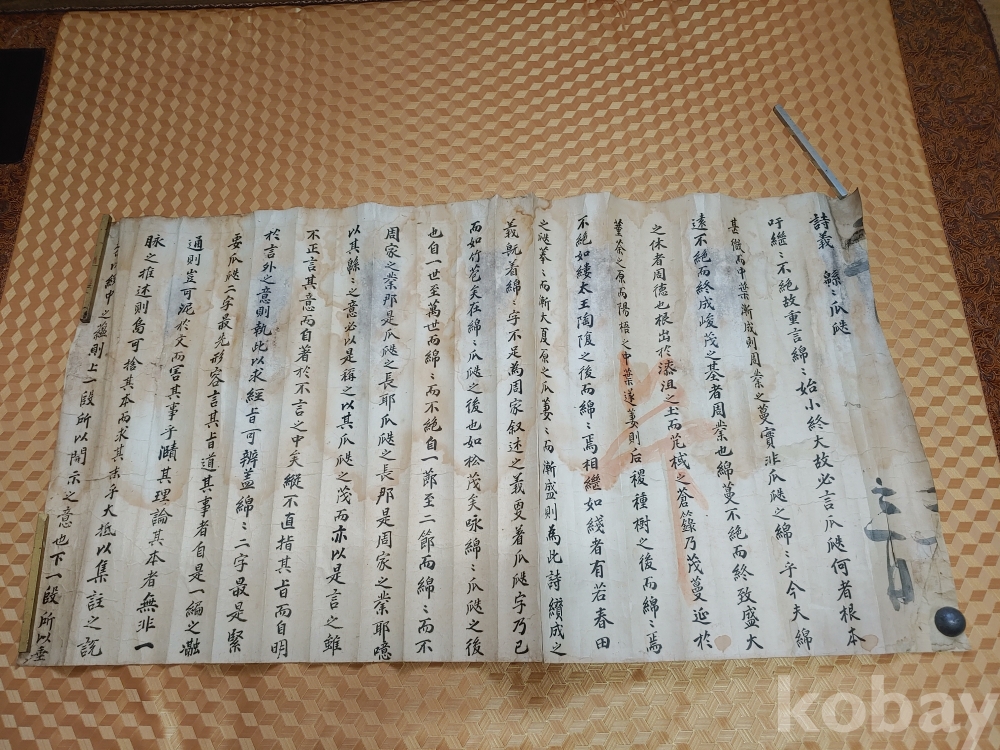 詩義 緜〻瓜瓞
吁繼〻不絶故重言綿〻始小終大故必言瓜瓞何者根本
甚微而中葉漸成則周業之蔓實非瓜瓞之綿〻乎今夫綿
遠不絶而終成峻茂之基者周業也綿蔓不絶而終致盛大
之休者周德也根出於漆沮之土而芃棫之蒼籙乃茂蔓延於
菫荼之原而陽梧之中葉遂萋則后稷種樹之後而綿〻焉
不絶如縷太王陶復之後而綿〻焉相繼如綫者有若春田
之瓞蓁〻而漸大夏原之瓜萋〻而漸盛則為此詩纘成之
義旣着綿〻字不足為周家叙述之義更着瓜瓞字乃已
而如竹苞矣在綿〻瓜瓞之後也如松茂矣咏綿〻瓜瓞之後
也自一世至萬世而綿〻而不絶自一節至二節而綿〻而不
周家之業那是瓜瓞之長耶瓜瓞之長那是周家之業耶噫
以其緜〻之意必以是稱之以其瓜瓞之茂而亦以是言之雖
不正言其意而自著於不言之中矣縱不直指其旨而自明
於言外之意則執此以求經旨可辨盖綿〻二字最是緊
要瓜瓞二字最先形容言其旨道其事者自是一編之
通則豈可泥於文而害其事乎賾其理論其本者無非一
脉之推述則烏可捨其本而求其末乎大抵以集註之說
經中之蘊則上一段所以開示之意也下一段所以垂